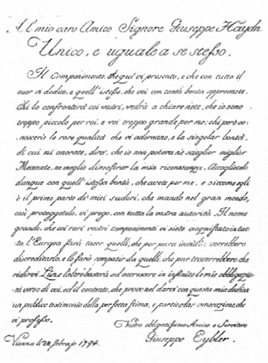 Al mio caro Amico Signore Giuseppe Haydn
Unico, e uguale a se stesso.
Il Componimento, che qui vi presento, e che con tutto il
cuor vi dedico, e quell' istesso, che voi con tanta bontà approvaste.
Chi lo confronterà coi vostri, vedrà a chiare note, che io sono
troppo piccolo per voi, e voi troppo grande per me; chi però co-
noscerà le rare qualità che vi adornano, e la singolar bontà,
di cui mi onorate, dirà, che io non poteva scegliere miglior
Mecenate, ne meglio dimostrar la mia riconoscenza. Accoglietelo
dunque con quell' istessa bontà, che avete per me, e siccome egli
è il primo parto de' miei sudori, che mando nel gran mondo,
così proteggetelo, vi prego, con tutta la vostra autorità. Il nome
grande, che coi rari vostri componimenti vi siete acquistato in tut-
ta l' Europa farà tacer quelli, che per pura invidia vorrebbero
discreditarlo, e lo farà compatir da quelli, che pur troverebbero che
ridirvi. L'une e l'altro ad accrescere in infinito le mie obbligazio-
ni verso di voi, ed il contento, che provo nel darvi con questa mia dedica
un publico testimonio della perfetta stima, e particolar venerazione, che
vi professo.
Vostro obligatissimo Amico e Servitore
Giuseppe Eybler
Vienna li 22 febrajo 1794.